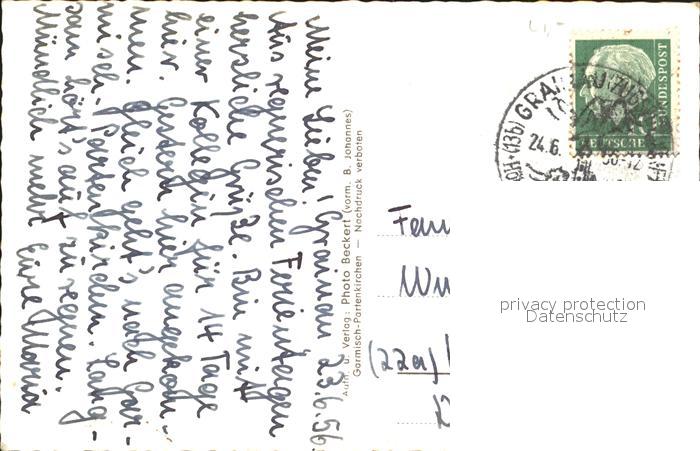 Grainau 23.6.56
Meine Lieben!
Aus regnerischen Ferientagen
herzliche Grüße. Bin mit
einer Kollegin für 14 Tage
hier. Gestern hier angekom-
men. Gleich geht's nach Gar-
misch-Partenkirchen. Lang-
sam hört's auf zu regnen.
Mündlich mehr Eure Maria
Aufn. u. Verlag: Photo Beckert (vorm. B. Johannes)
Garmisch-Partenkirchen — Nachdruck verboten
DEUTSCHE BUNDESPOST
(13b) GRAINAU
24.6.
Fam
(22a)
privacy protection
Datenschutz